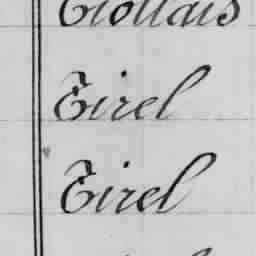 Tirel
Tirel